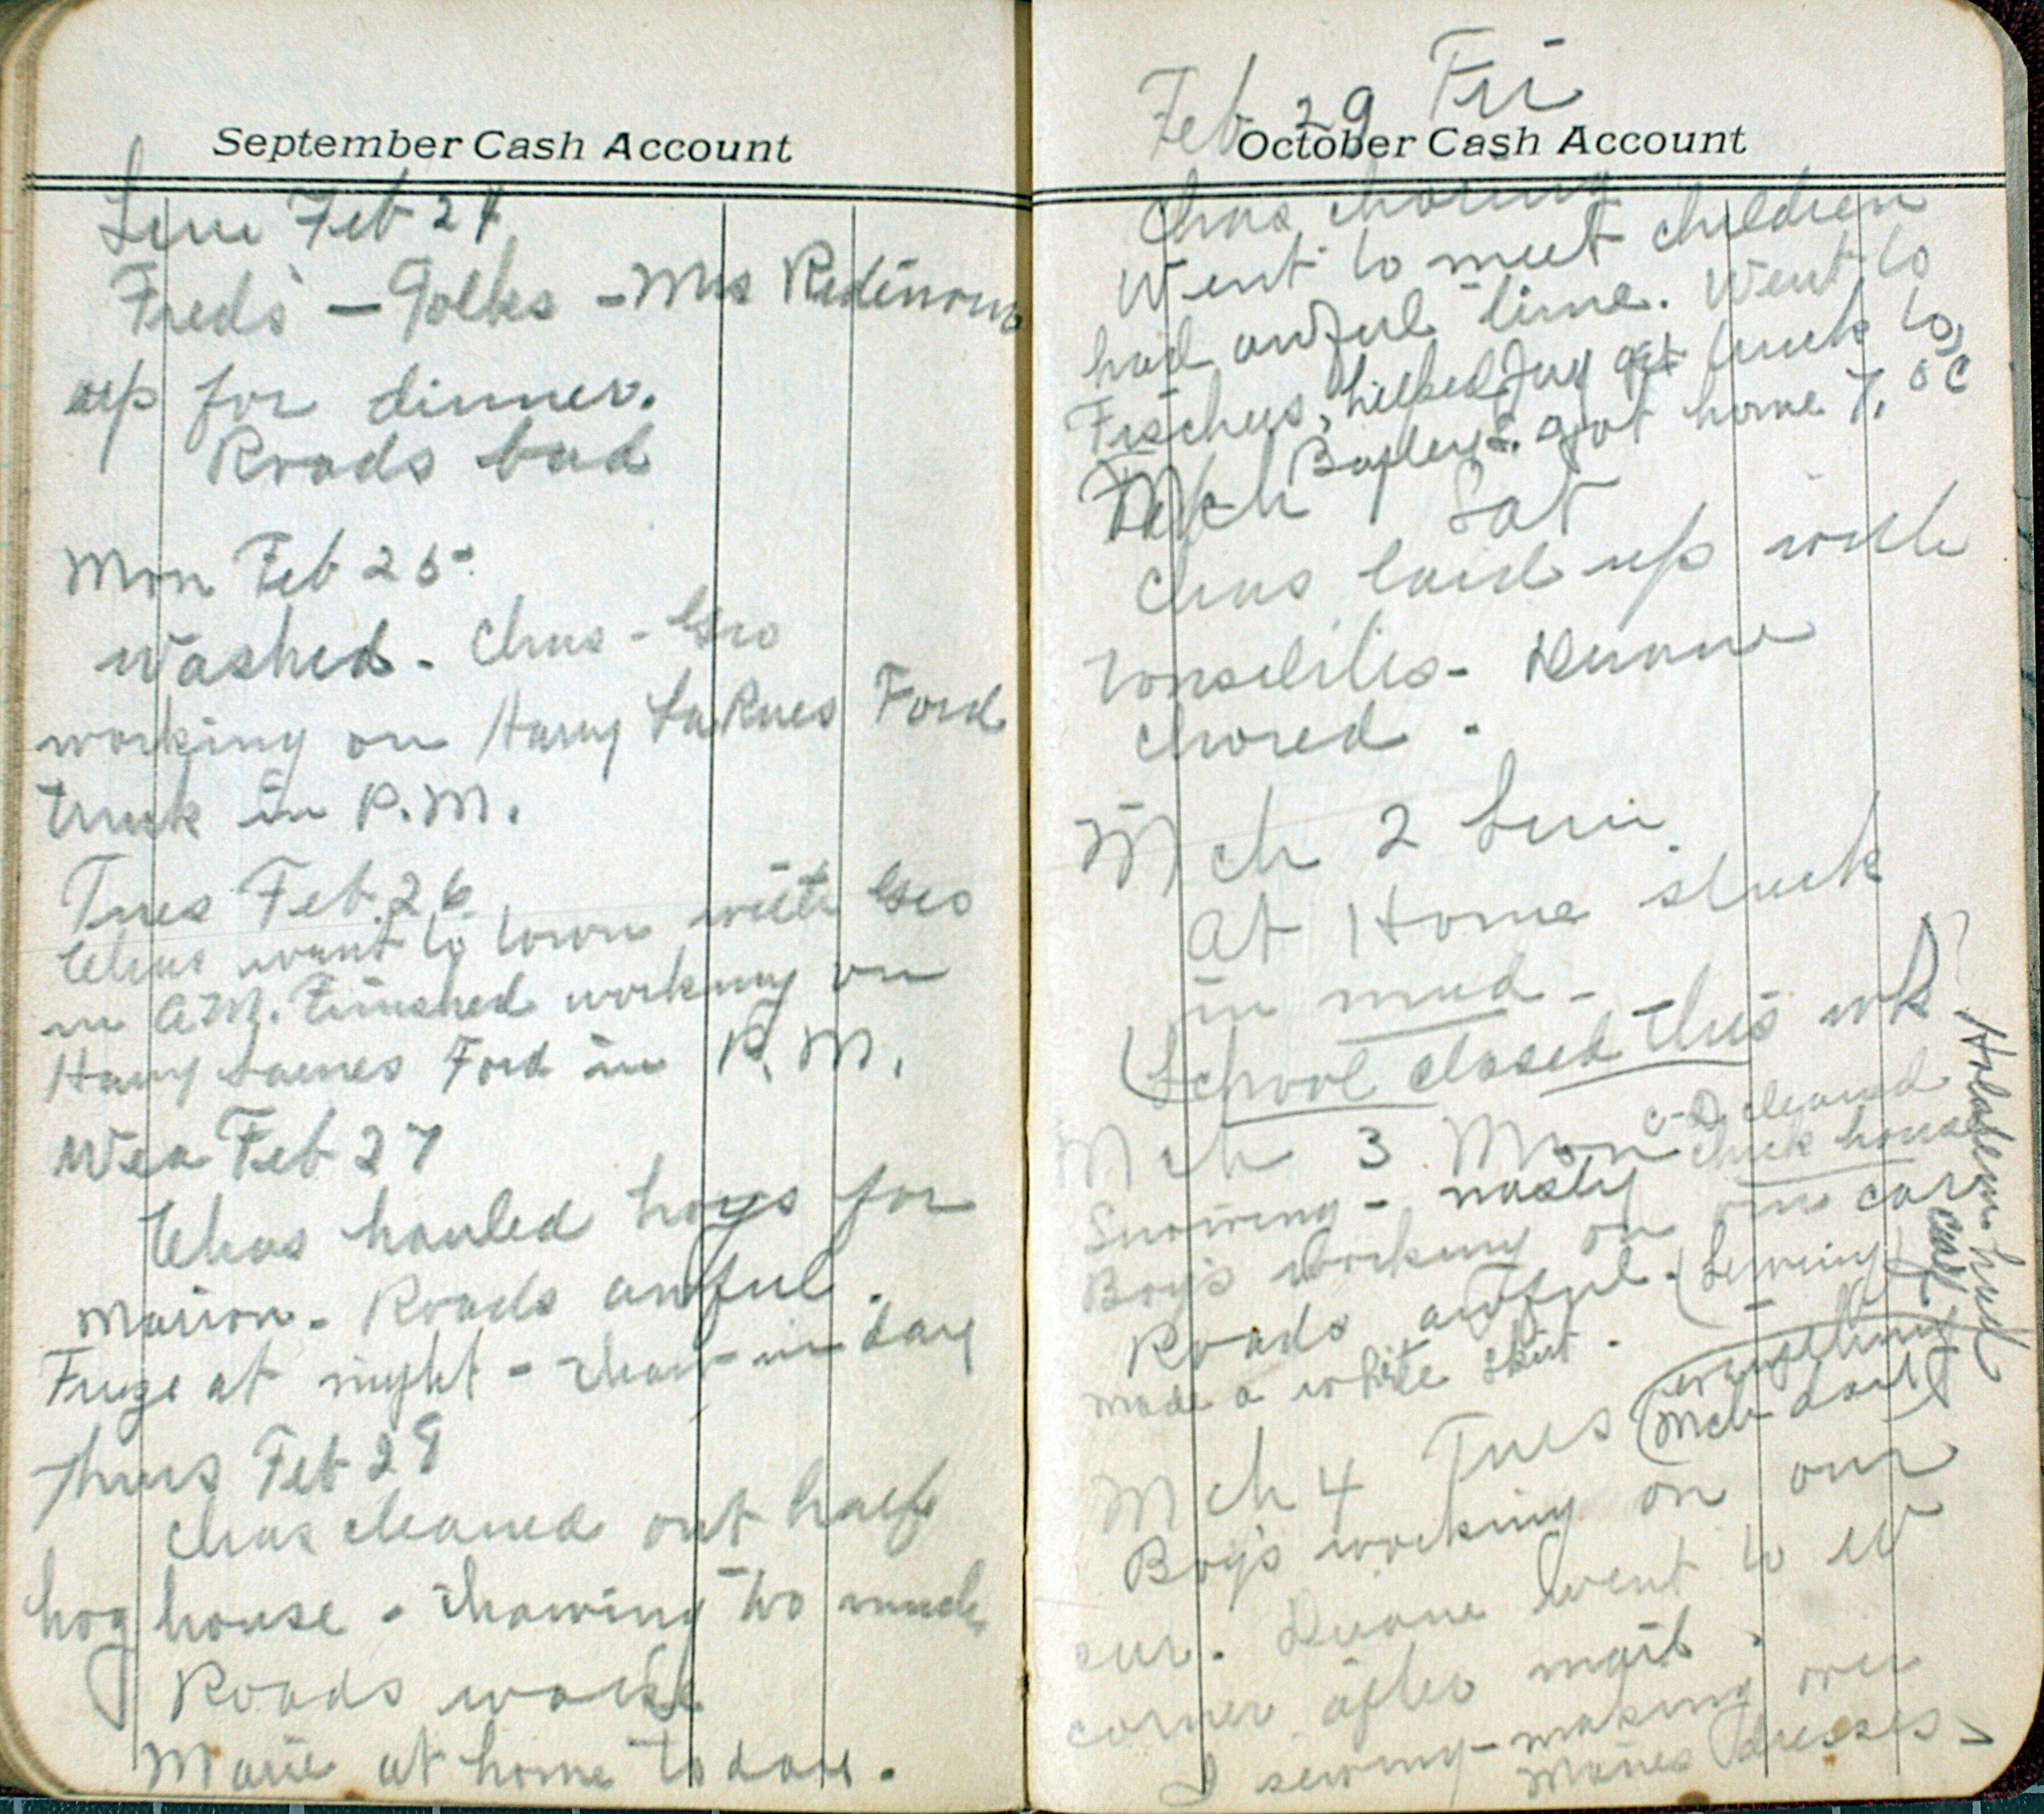 September Cash Account
Sun Feb 24
Freds - Folks - Mrs Ridenour
up for dinner.
Roads bad
Mon Feb 25
Washed. Chas - Geo
working on Harry LaRues Ford
truck in P.M.
Tues Feb. 26
Chas went to town with Geo
in A.M. Finished working on
Harry Ford in P.M.
Wed Feb 27
Chas hauled hogs for
Marion - Roads awful.
Freeze at night - thaw in day
Thurs Feb 28
Chas cleaned out half
hog house - thawing too much
Roads worse
Marie at home today.
Feb 29 Fri
October Cash Account
Chas choring
Went to meet children
had awful time. Went to
Fischers, helped Jay get truck to
got home 7, oc
Mch Sat
Chas laid up with
tonsilitis - Duane
chored.
Mch 2 Sun
At Home stuck
in mud -
(School closed this wk
Mch 3 Mon
C-D cleaned
chick house
Snowing - nasty
Boys working on our car
Roads awful. (Sewing)
made a white skirt.
Holstein had
calf
Mch 4 Tues
(Mch
Boys working on our
car. Duane went to W
corner after mail.
I sewing - making over
Maries dresses -